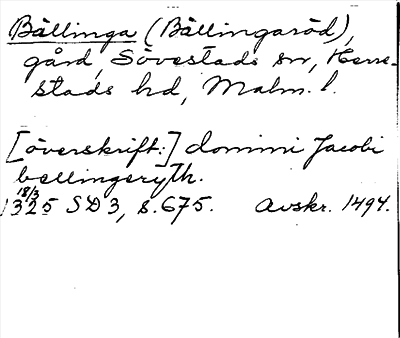 Bällinga (Bällingaröd),
gård, Sövestads sn, Herre-
stads hd, Malm. l.
[överskrift:] domini Jacobi
bællingeryth.
18/3
1325 SD 3, s. 675. Avskr. 1494.